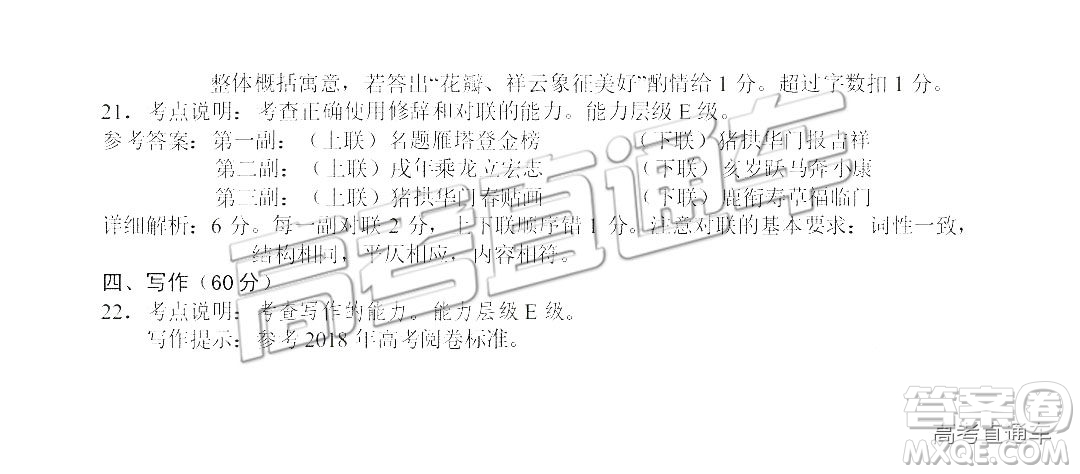 整体概括寓意，若答出“花瓣、祥云象征美好”酌情给 1 分。超过字数扣 1 分。
21．考点说明：考查正确使用修辞和对联的能力。能力层级 E 级。
参考答案：第一副：（上联）名题雁塔登金榜 （下联）猪拱华门报吉祥
第二副：（上联）戌年乘龙立宏志 （下联）亥岁跃马奔小康
第三副：（上联）猪拱华门春贴画 （下联）鹿衔寿草福临门
详细解析：6 分。每一副对联 2 分，上下联顺序错 1 分。注意对联的基本要求：词性一致，
结构相同，平仄相应，内容相符。
四、写作（60 分）
22．考点说明：考查写作的能力。能力层级 E 级。
写作提示：参考 2018 年高考阅卷标准。
高考直通车
答案卷
高考直通车
MXQE.COM